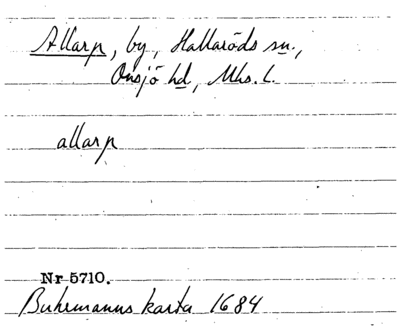 Allarp, by, Hallaröds sn.,
Onsjö hd, Mhs. l.
allarp
Nr 5710.
Buhrmanns karta 1684